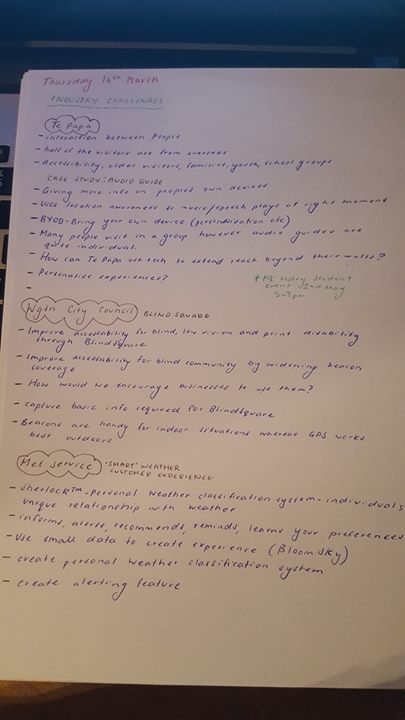 Thursday 16th March
INDUSTRY CHALLENGES
Te Papa
- interaction between people
- half of the visitors are from overseas
- Accessibility, older visitors, families, youth, school groups
CASE STUDY: AUDIO GUIDE
- Giving more info on peoples own devices
- Use location awareness so music/speech plays at right moment
- BYOD - Bring your own device (personalisation etc)
- Many people visit in a group however audio guides are
quite individual.
- How can Te Papa use tech to extend reach beyond their walls?
- Personalise experiences?
-
student
event 22nd May
5-7pm
Wgtn City Council BLINDSQUARE
- Improve accessability for blind, low vision and print disability
through Blindsquare
- Improve accessability for blind community by widening beacon
coverage
- How would we encourage businesses to use them?
- capture basic info required for BlindSquare
- Beacons are handy for indoor situations whereas GPS works
best outdoors
Met service 'SMART' WEATHER
CUSTOMER EXPERIENCE
- Sherlock™ - personal weather classification system - individuals
unique relationship with weather
- informs, alerts, recommends, reminds, learns your preferences
- Use small data to create experience (BloomSky)
- create personal weather classification system
- create alerting feature